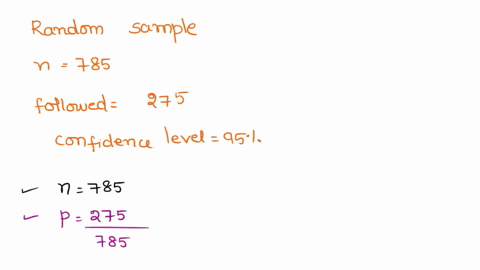 Random sample
n = 785
followed = 275
confidence level = 95%.
✓ n = 785
✓ p = 275
785